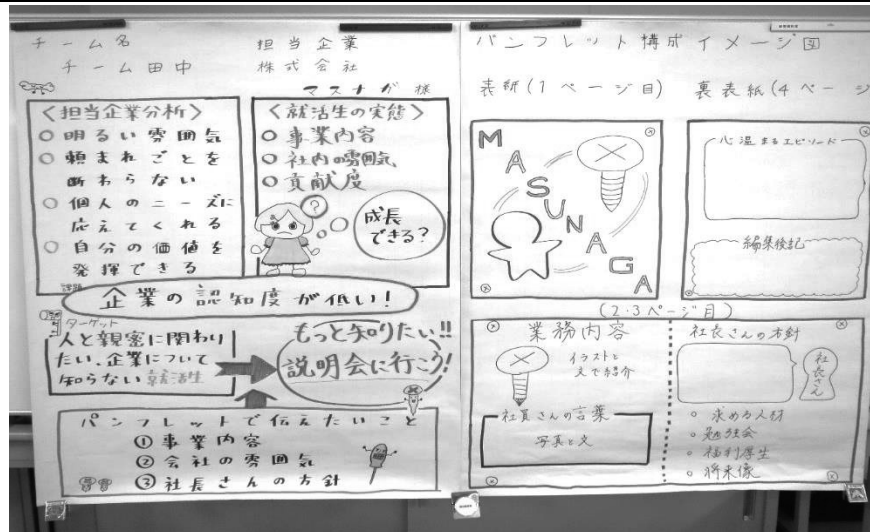 チーム名
チーム田中
担当企業
株式会社
マスナガ 様
<担当企業分析>
○ 明るい雰囲気
○ 頼まれごとを
断わらない
○ 個人のニーズに
応えてくれる
○ 自分の価値を
発揮できる
<就活生の実態>
○ 事業内容
○ 社内の雰囲気
○ 貢献度
?
成長
できる?
課題
企業の認知度が低い!
ターゲット
人と親密に関わり
たい、企業について
知らない就活生
もっと知りたい!!
説明会に行こう!
パンフレットで伝えたいこと
① 事業内容
② 会社の雰囲気
③ 社長さんの方針
パンフレット構成イメージ図
表紙(1ページ目)
MASUNAGA
裏表紙(4ページ
心温まるエピソード
編集後記
(2・3ページ目)
業務内容
イラストと
文で紹介
社員さんの言葉
写真と文
社長さんの方針
社長さん
○ 求める人材
○ 勉強会
○ 福利厚生
○ 将来像